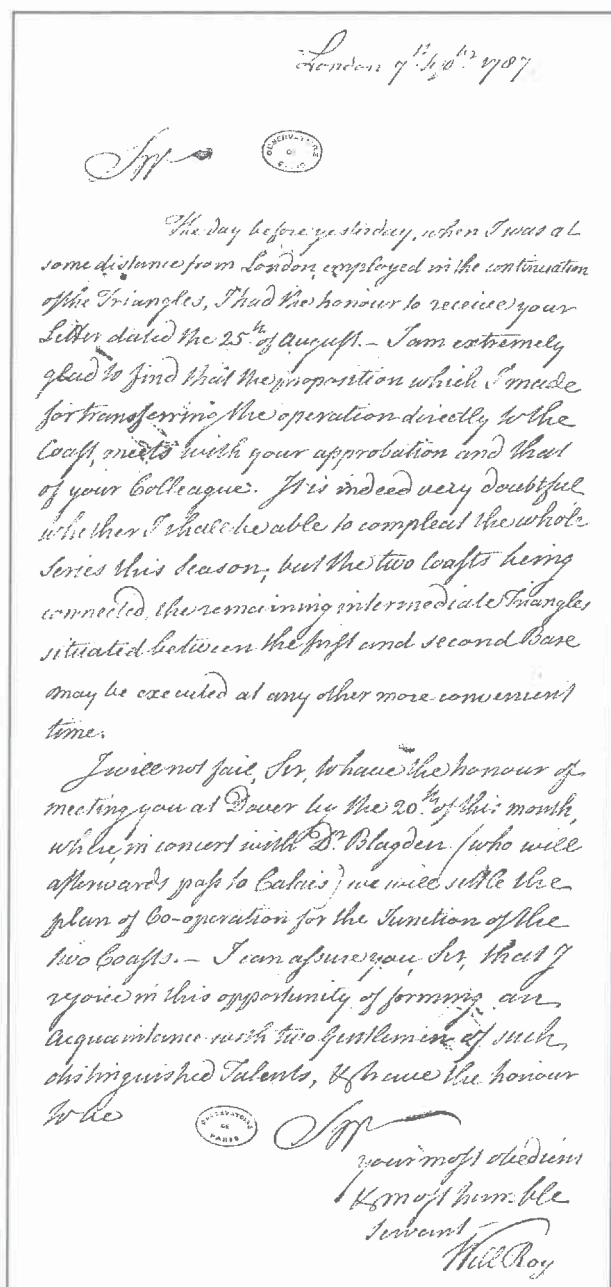 London 7th Septr. 1787
Sir
OBSERVATOIRE
DE
PARIS
The day before yesterday, when I was at
some distance from London, employed in the continuation
of the Triangles, I had the honour to receive your
Letter dated the 25th of August. – I am extremely
glad to find that the proposition which I made
for transferring the operation directly to the
Coast, meets with your approbation and that
of your Colleague. It is indeed very doubtful
whether I shall be able to compleat the whole
Series this Season; but the two Coasts being
connected, the remaining intermediate Triangles
situated between the first and second Base
may be executed at any other more convenient
time.
I will not fail, Sir, to have the honour of
meeting you at Dover by the 20th of this month,
where, in concert with Dr. Blagden (who will
afterwards pass to Calais) we will settle the
plan of Co-operation for the Junction of the
two Coasts. – I can assure you, Sir, that I
rejoice in this opportunity of forming an
Acquaintance with two Gentlemen of such
distinguished Talents, & have the honour
to be
OBSERVATOIRE
DE
PARIS
Sir
your most obedient
& most humble
Servant –
Will Roy